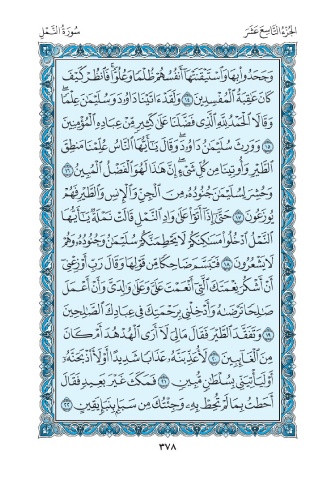 الجزء التاسع عشر
سورة النمل
وَجَحَدُوا۟ بِهَا وَٱسْتَيْقَنَتْهَآ أَنفُسُهُمْ ظُلْمًا وَعُلُوًّا ۚ فَٱنظُرْ كَيْفَ
كَانَ عَٰقِبَةُ ٱلْمُفْسِدِينَ ١٤ وَلَقَدْ ءَاتَيْنَا دَاوُۥدَ وَسُلَيْمَٰنَ عِلْمًا ۖ
وَقَالَا ٱلْحَمْدُ لِلَّهِ ٱلَّذِى فَضَّلَنَا عَلَىٰ كَثِيرٍ مِّنْ عِبَادِهِ ٱلْمُؤْمِنِينَ
١٥ وَوَرِثَ سُلَيْمَٰنُ دَاوُۥدَ ۖ وَقَالَ يَٰٓأَيُّهَا ٱلنَّاسُ عُلِّمْنَا مَنطِقَ
ٱلطَّيْرِ وَأُوتِينَا مِن كُلِّ شَىْءٍ ۖ إِنَّ هَٰذَا لَهُوَ ٱلْفَضْلُ ٱلْمُبِينُ ١٦
وَحُشِرَ لِسُلَيْمَٰنَ جُنُودُهُۥ مِنَ ٱلْجِنِّ وَٱلْإِنسِ وَٱلطَّيْرِ فَهُمْ
يُوزَعُونَ ١٧ حَتَّىٰٓ إِذَآ أَتَوْا۟ عَلَىٰ وَادِ ٱلنَّمْلِ قَالَتْ نَمْلَةٌ يَٰٓأَيُّهَا
ٱلنَّمْلُ ٱدْخُلُوا۟ مَسَٰكِنَكُمْ لَا يَحْطِمَنَّكُمْ سُلَيْمَٰنُ وَجُنُودُهُۥ وَهُمْ
لَا يَشْعُرُونَ ١٨ فَتَبَسَّمَ ضَاحِكًا مِّن قَوْلِهَا وَقَالَ رَبِّ أَوْزِعْنِىٓ
أَنْ أَشْكُرَ نِعْمَتَكَ ٱلَّتِىٓ أَنْعَمْتَ عَلَىَّ وَعَلَىٰ وَٰلِدَىَّ وَأَنْ أَعْمَلَ
صَٰلِحًا تَرْضَىٰهُ وَأَدْخِلْنِى بِرَحْمَتِكَ فِى عِبَادِكَ ٱلصَّٰلِحِينَ
١٩ وَتَفَقَّدَ ٱلطَّيْرَ فَقَالَ مَا لِىَ لَآ أَرَى ٱلْهُدْهُدَ أَمْ كَانَ
مِنَ ٱلْغَآئِبِينَ ٢٠ لَأُعَذِّبَنَّهُۥ عَذَابًا شَدِيدًا أَوْ لَأَا۟ذْبَحَنَّهُۥٓ
أَوْ لَيَأْتِيَنِّى بِسُلْطَٰنٍ مُّبِينٍ ٢١ فَمَكَثَ غَيْرَ بَعِيدٍ فَقَالَ
أَحَطتُ بِمَا لَمْ تُحِطْ بِهِۦ وَجِئْتُكَ مِن سَبَإٍۭ بِنَبَإٍ يَقِينٍ ٢٢
٣٧٨